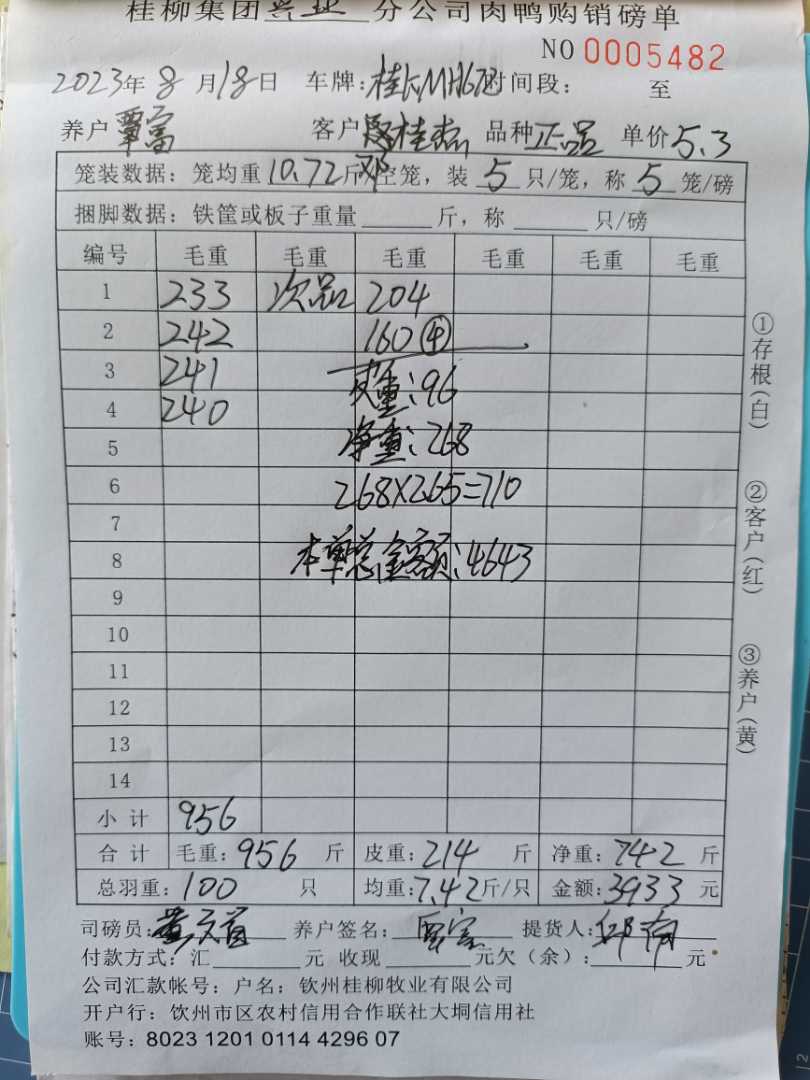 桂柳集团兴业分公司肉鸭购销磅单
NO 0005482
2023年8月18日 车牌:桂KMH678时间段: 至
养户 覃富 客户 桂杰 品种 正品 单价 5.3
笼装数据:笼均重 10.72 斤/空笼,装 5 只/笼,称 5 笼/磅
捆脚数据:铁筐或板子重量 斤,称 只/磅
编号 毛重 毛重 毛重 毛重 毛重 毛重
1 233 次品 204
2 242 160 ④
3 241 皮重:96
4 240
5 净重:268
6 268×2.65=710
7
8 本单总金额:4643
9
10
11
12
13
14
小计 956
合计 毛重:956 斤 皮重:214 斤 净重:742 斤
总羽重:100 只 均重:7.42斤/只 金额:3933 元
司磅员: 养户签名: 覃富 提货人:
付款方式:汇 元 收现 元欠(余): 元
公司汇款帐号:户名:钦州桂柳牧业有限公司
开户行:钦州市区农村信用合作联社大垌信用社
账号:8023 1201 0114 4296 07
①存根(白)
②客户(红)
③养户(黄)